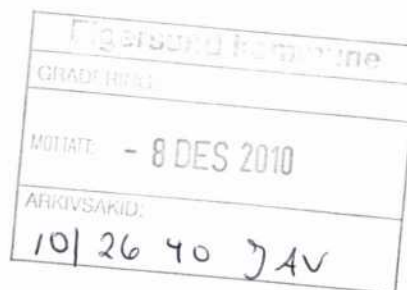 Eigersund kommune
GRADERING:
MOTTATT: - 8 DES 2010
ARKIVSAKID:
10/26 40 JAV